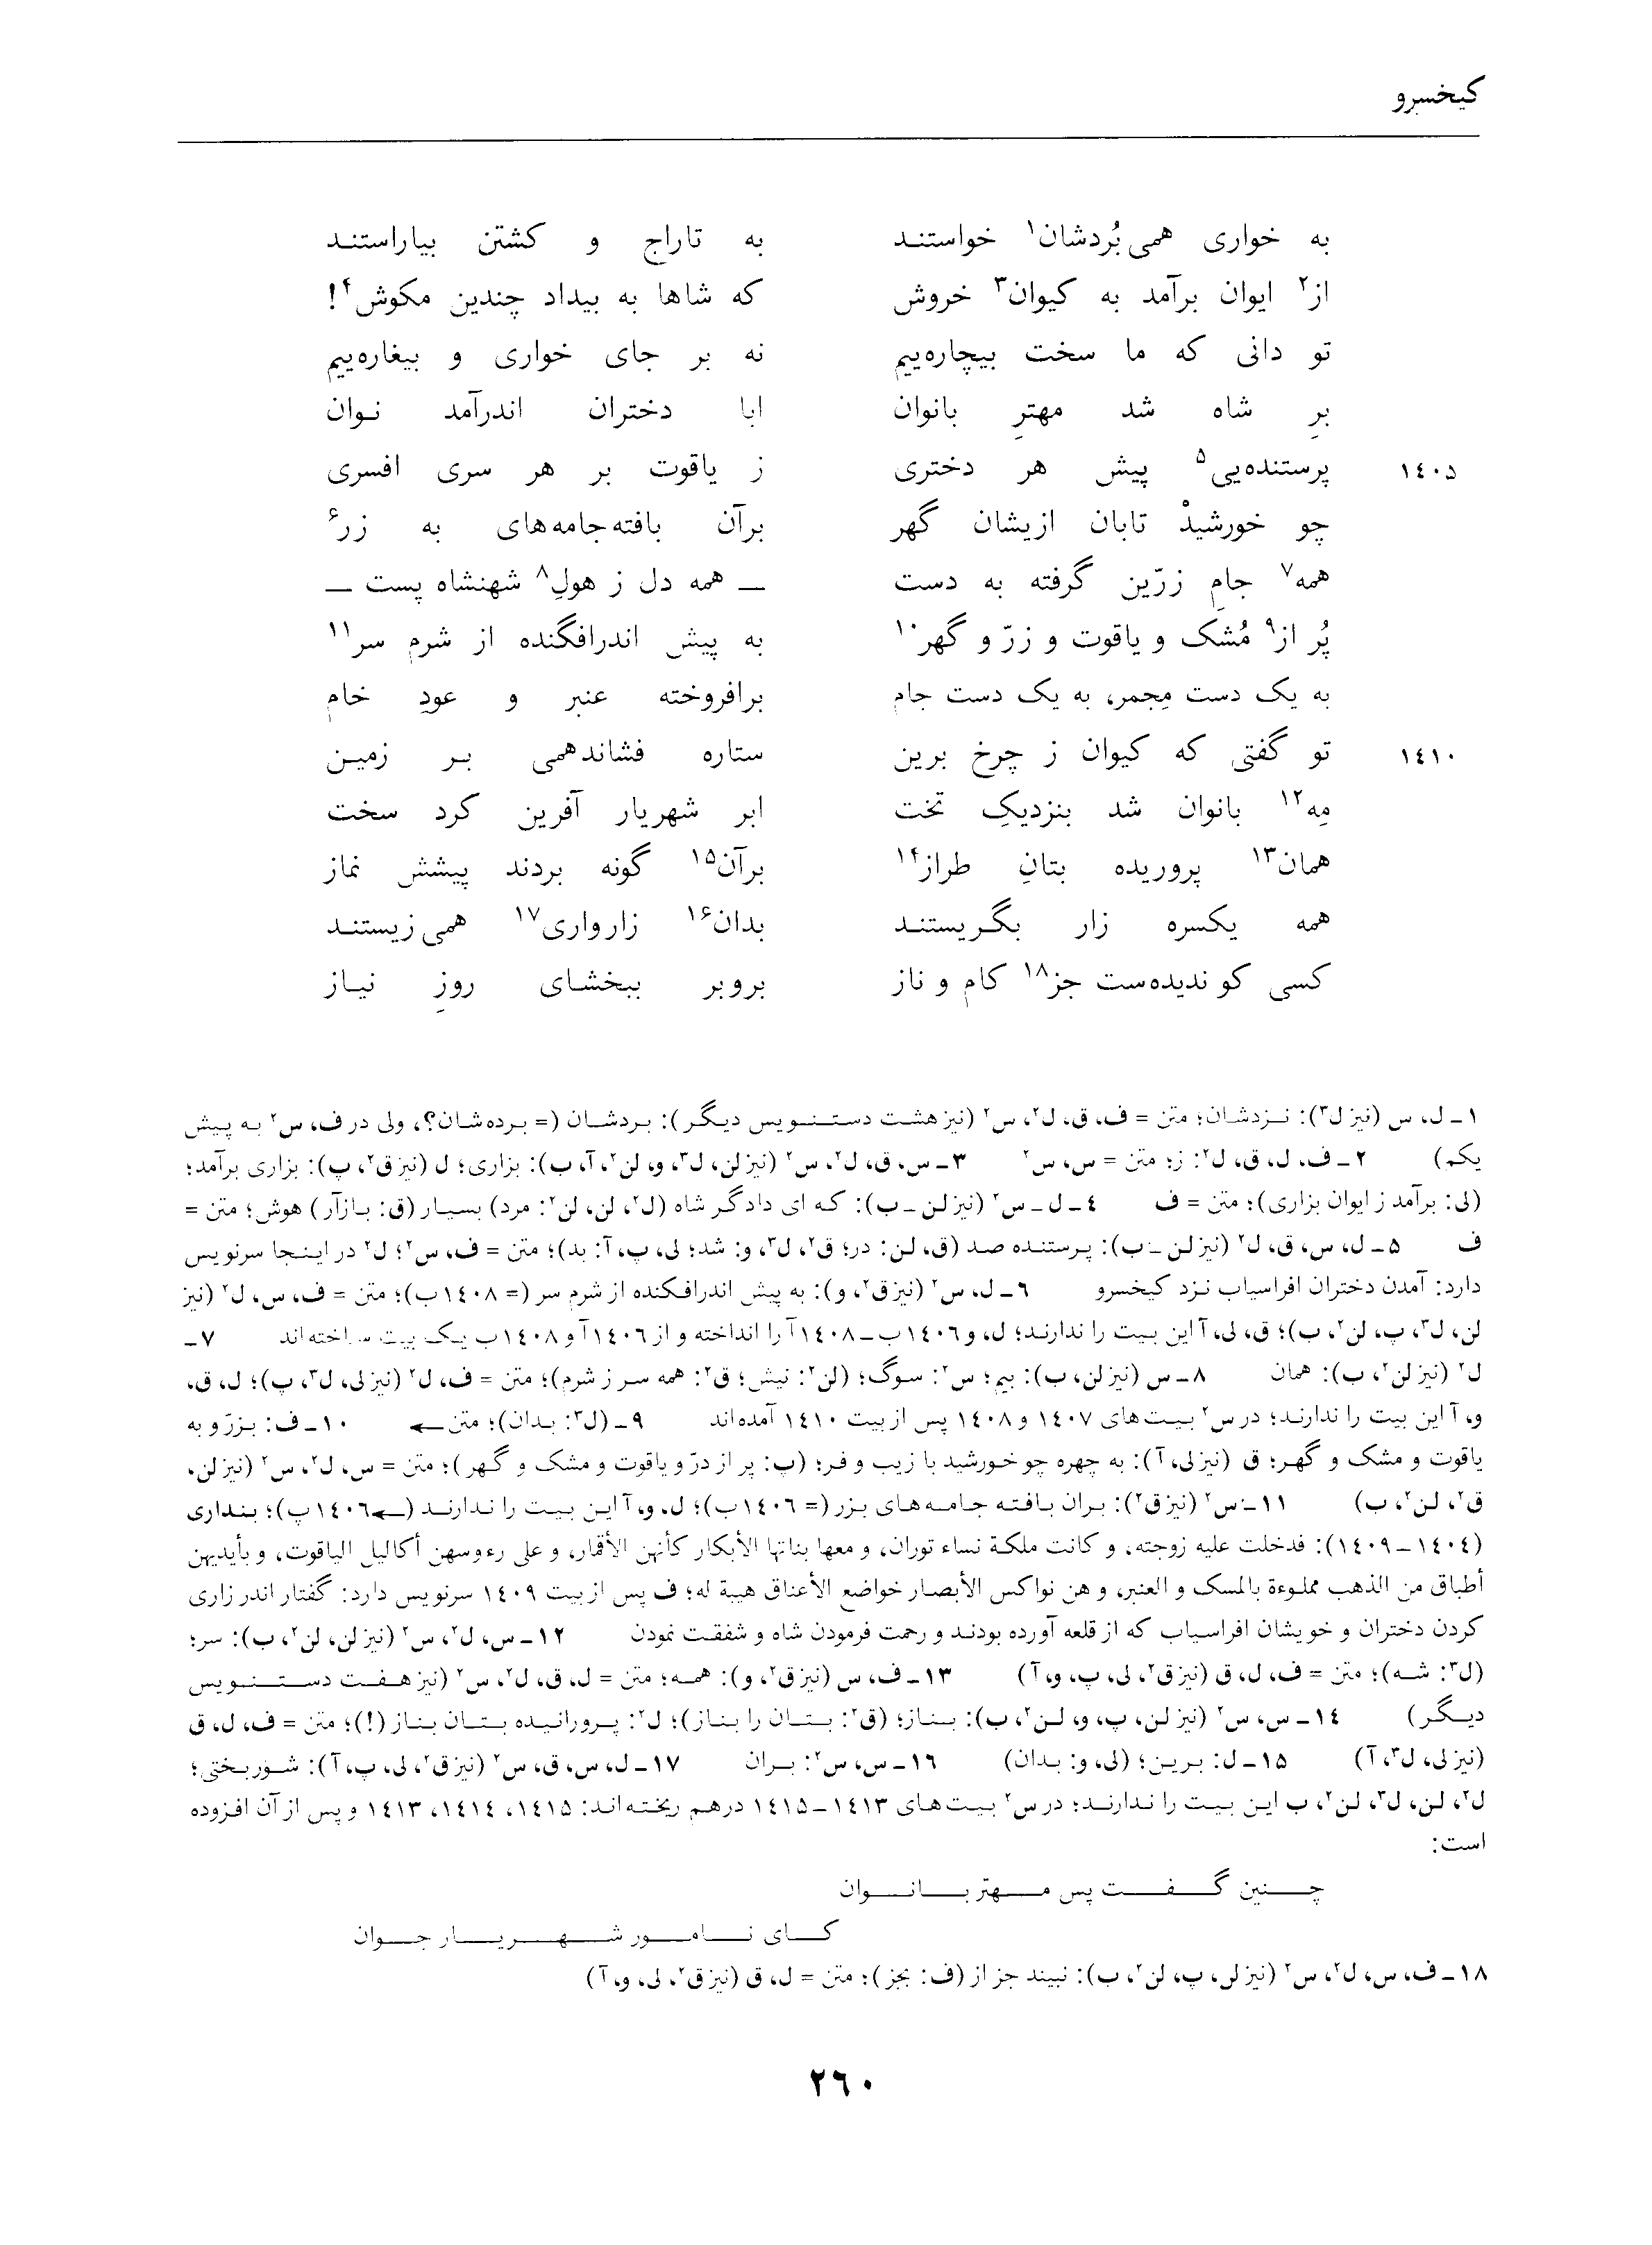 کیخسرو
به خواری همی بُردشان۱ خواستند به تاراج و کشتن بیاراستند
از۲ ایوان برآمد به کیوان۳ خروش که شاها به بیداد چندین مکوش۴!
تو دانی که ما سخت بیچاره‌ییم نه بر جای خواری و بیغاره‌ییم
برِ شاه شد مهترِ بانوان ابا دختران اندرآمد نوان
۱٤۰۵ پرستنده‌یی۵ پیش هر دختری ز یاقوت بر هر سری افسری
چو خورشیدْ تابان ازیشان گهر برآن بافته جامه‌های به زر۶
همه۷ جامِ زرّین گرفته به دست ــ همه دل ز هولِ۸ شهنشاه پست ــ
پُر از۹ مُشک و یاقوت و زرّ و گهر۱۰ به پیش اندرافگنده از شرم سر۱۱
به یک دست مِجمر، به یک دست جام برافروخته عنبر و عودِ خام
۱٤۱۰ تو گفتی که کیوان ز چرخ برین ستاره فشاندهمی بر زمین
مِه۱۲ بانوان شد بنزدیکِ تخت ابر شهریار آفرین کرد سخت
همان۱۳ پروریده بتانِ طراز۱۴ برآن۱۵ گونه بردند پیشش نماز
همه یکسره زار بگریستند بدان۱۶ زارواری۱۷ همی زیستند
کسی کو ندیده‌ست جز۱۸ کام و ناز بروبر ببخشای روزِ نیاز
۱ــ ل، س (نیز ل۳): نزدشان؛ متن = ف، ق، ل۲، س۲ (نیز هشت دستنویس دیگر): بردشان (= برده‌شان؟، ولی در ف، س۲ به پیش
یکم) ۲ــ ف، ل، ق، ل۲: ز؛ متن = س، س۲ ۳ــ س، ق، ل۲، س۲ (نیز لن، ل۳، و، لن۲، آ، ب): بزاری؛ ل (نیز ق۲، پ): بزاری برآمد؛
(لی: برآمد ز ایوان بزاری)؛ متن = ف ٤ــ ل ــ س۲ (نیز لن ــ ب): که ای دادگر شاه (ل۲، لن، لن۲: مرد) بسیار (ق: بازآر) هوش؛ متن =
ف ۵ــ ل، س، ق، ل۲ (نیز لن ــ ب): پرستنده صد (ق، لن: در؛ ق۲، ل۳، و: شد؛ لی، پ، آ: بد)؛ متن = ف، س۲؛ ل۲ در اینجا سرنویس
دارد: آمدن دختران افراسیاب نزد کیخسرو ٦ــ ل، س۲ (نیز ق۲، و): به پیش اندرافکنده از شرم سر (= ۱٤۰۸ ب)؛ متن = ف، س، ل۲ (نیز
لن، ل۳، پ، لن۲، ب)؛ ق، لی، آ این بیت را ندارند؛ ل، و ۱٤۰٦ ب ــ ۱٤۰۸ آ را انداخته و از ۱٤۰٦ آ و ۱٤۰۸ ب یک بیت ساخته‌اند ۷ــ
ل۲ (نیز لن۲، ب): همان ۸ــ س (نیز لن، ب): بیم؛ س۲: سوگ؛ (لن۲: نیش؛ ق۲: همه سر ز شرم)؛ متن = ف، ل۲ (نیز لی، ل۳، پ)؛ ل، ق،
و، آ این بیت را ندارند؛ در س۲ بیت‌های ۱٤۰۷ و ۱٤۰۸ پس از بیت ۱٤۱۰ آمده‌اند ۹ــ (ل۳: بدان)؛ متن ← ۱۰ــ ف: بزرّ و به
یاقوت و مشک و گهر؛ ق (نیز لی، آ): به چهره چو خورشید با زیب و فر؛ (پ: پر از درّ و یاقوت و مشک و گهر)؛ متن = س، ل۲، س۲ (نیز لن،
ق۲، لن۲، ب) ۱۱ــ س۲ (نیز ق۲): بران بافته جامه‌های بزر (= ۱٤۰٦ ب)؛ ل، و، آ این بیت را ندارند (← ۱٤۰٦ پ)؛ بنداری
(۱٤۰٤ ــ ۱٤۰۹): فدخلت علیه زوجته، و کانت ملکة نساء توران، و معها بناتها الأبکار کأنهن الأقمار، و علی رءوسهن أکالیل الیاقوت، و بأیدیهن
أطباق من الذهب مملوءة بالمسک و العنبر، و هن نواکس الأبصار خواضع الأعناق هیبة له؛ ف پس از بیت ۱٤۰۹ سرنویس دارد: گفتار اندر زاری
کردن دختران و خویشان افراسیاب که از قلعه آورده بودند و رحمت فرمودن شاه و شفقت نمودن ۱۲ــ س، ل۲، س۲ (نیز لن، لن۲، ب): سر؛
(ل۳: شه)؛ متن = ف، ل، ق (نیز ق۲، لی، پ، و، آ) ۱۳ــ ف، س (نیز ق۲، و): همه؛ متن = ل، ق، ل۲، س۲ (نیز هفت دستنویس
دیگر) ۱٤ــ س، س۲ (نیز لن، پ، و، لن۲، ب): بناز؛ (ق۲: بتان را بناز)؛ ل۲: پرورانیده بتان بناز (!)؛ متن = ف، ل، ق
(نیز لی، ل۳، آ) ۱۵ــ ل: برین؛ (لی، و: بدان) ۱٦ــ س، س۲: بران ۱۷ــ ل، س، ق، س۲ (نیز ق۲، لی، پ، آ): شوربختی؛
ل۲، لن، ل۳، لن۲، ب این بیت را ندارند؛ در س۲ بیت‌های ۱٤۱۳ ــ ۱٤۱۵ درهم ریخته‌اند: ۱٤۱۵، ۱٤۱٤، ۱٤۱۳ و پس از آن افزوده
است:
چنین گفت پس مهتر بانوان
کای نامور شهریار جوان
۱۸ــ ف، س، ل۲، س۲ (نیز لن، پ، لن۲، ب): نبیند جز از (ف: بجز)؛ متن = ل، ق (نیز ق۲، لی، و، آ)
۲٦۰